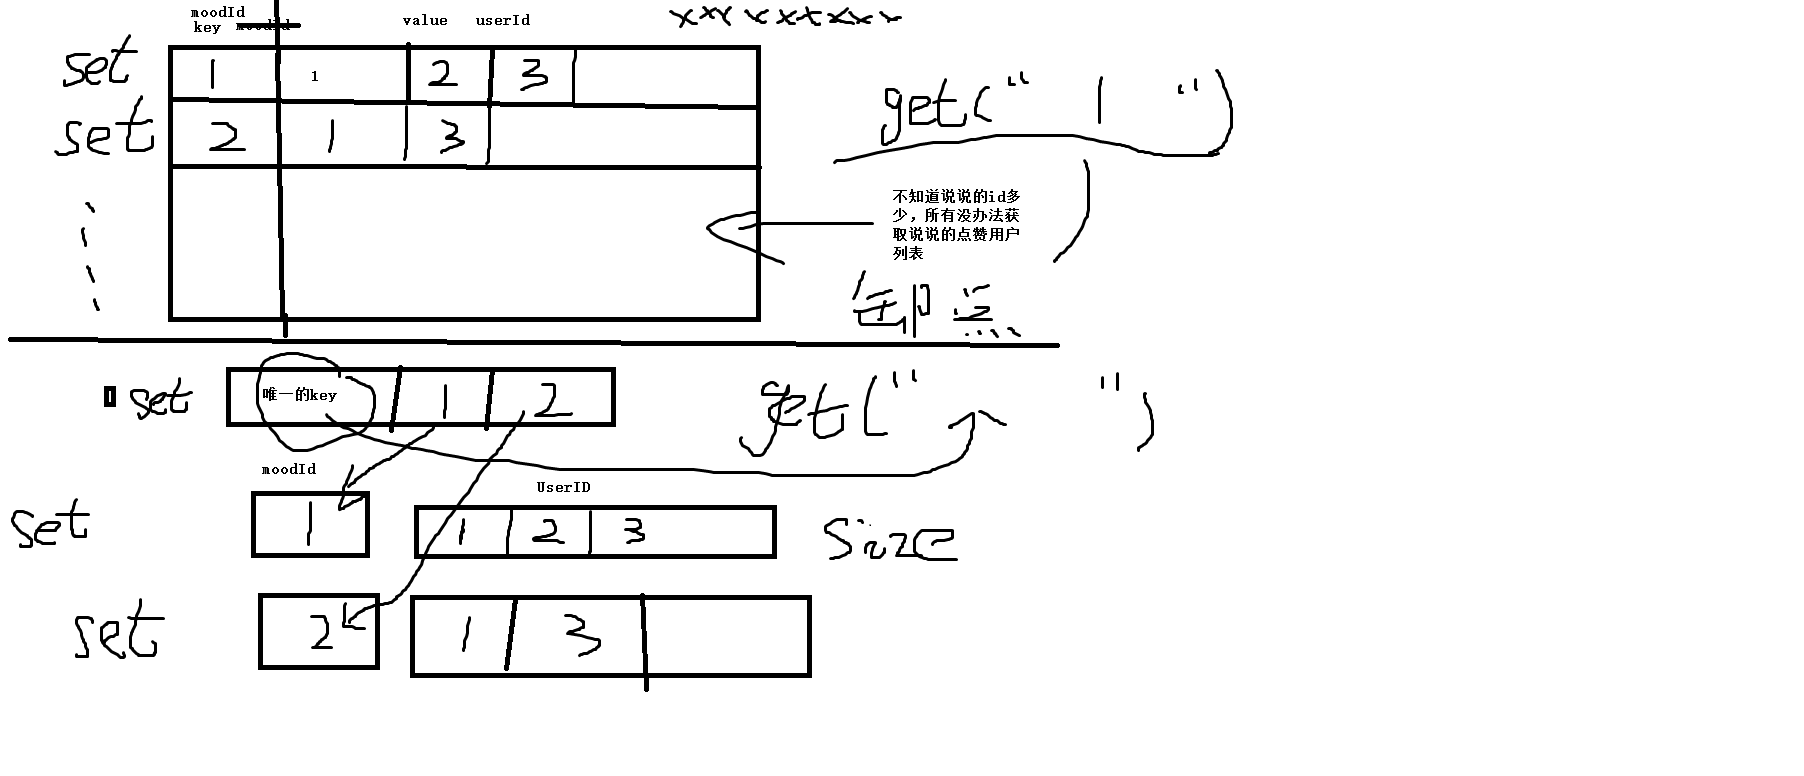 moodId
key moodId value userId
set 1 1 2 3
set 2 1 3
get(" 1 ")
不知道说说的id多
少，所有没办法获
取说说的点赞用户
列表
缺点
set 唯一的key 1 2 get(" ")
moodId
UserID
set 1 1 2 3 Size
set 2 1 3